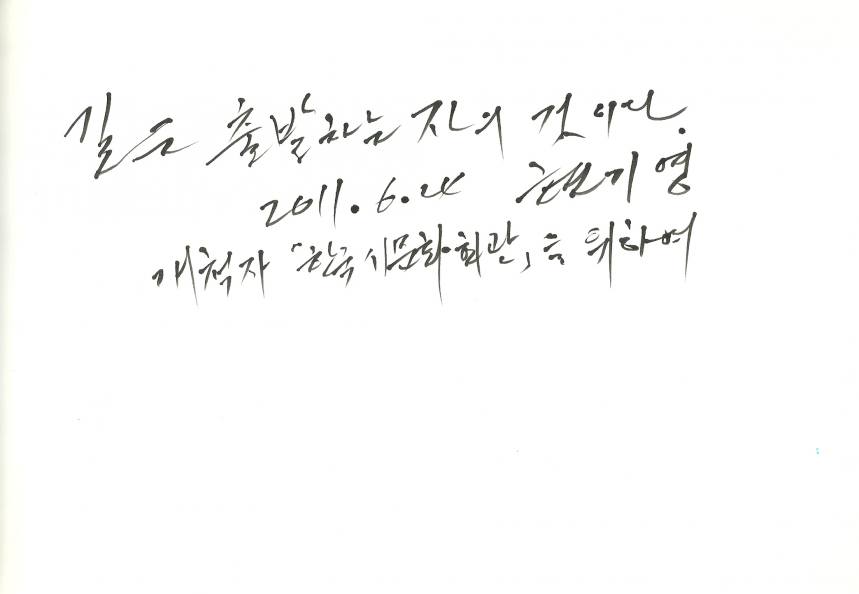 길은 출발하는 자의 것이다.
2011. 6. 24 현기영
개척자 「한국시문화회관」을 위하여